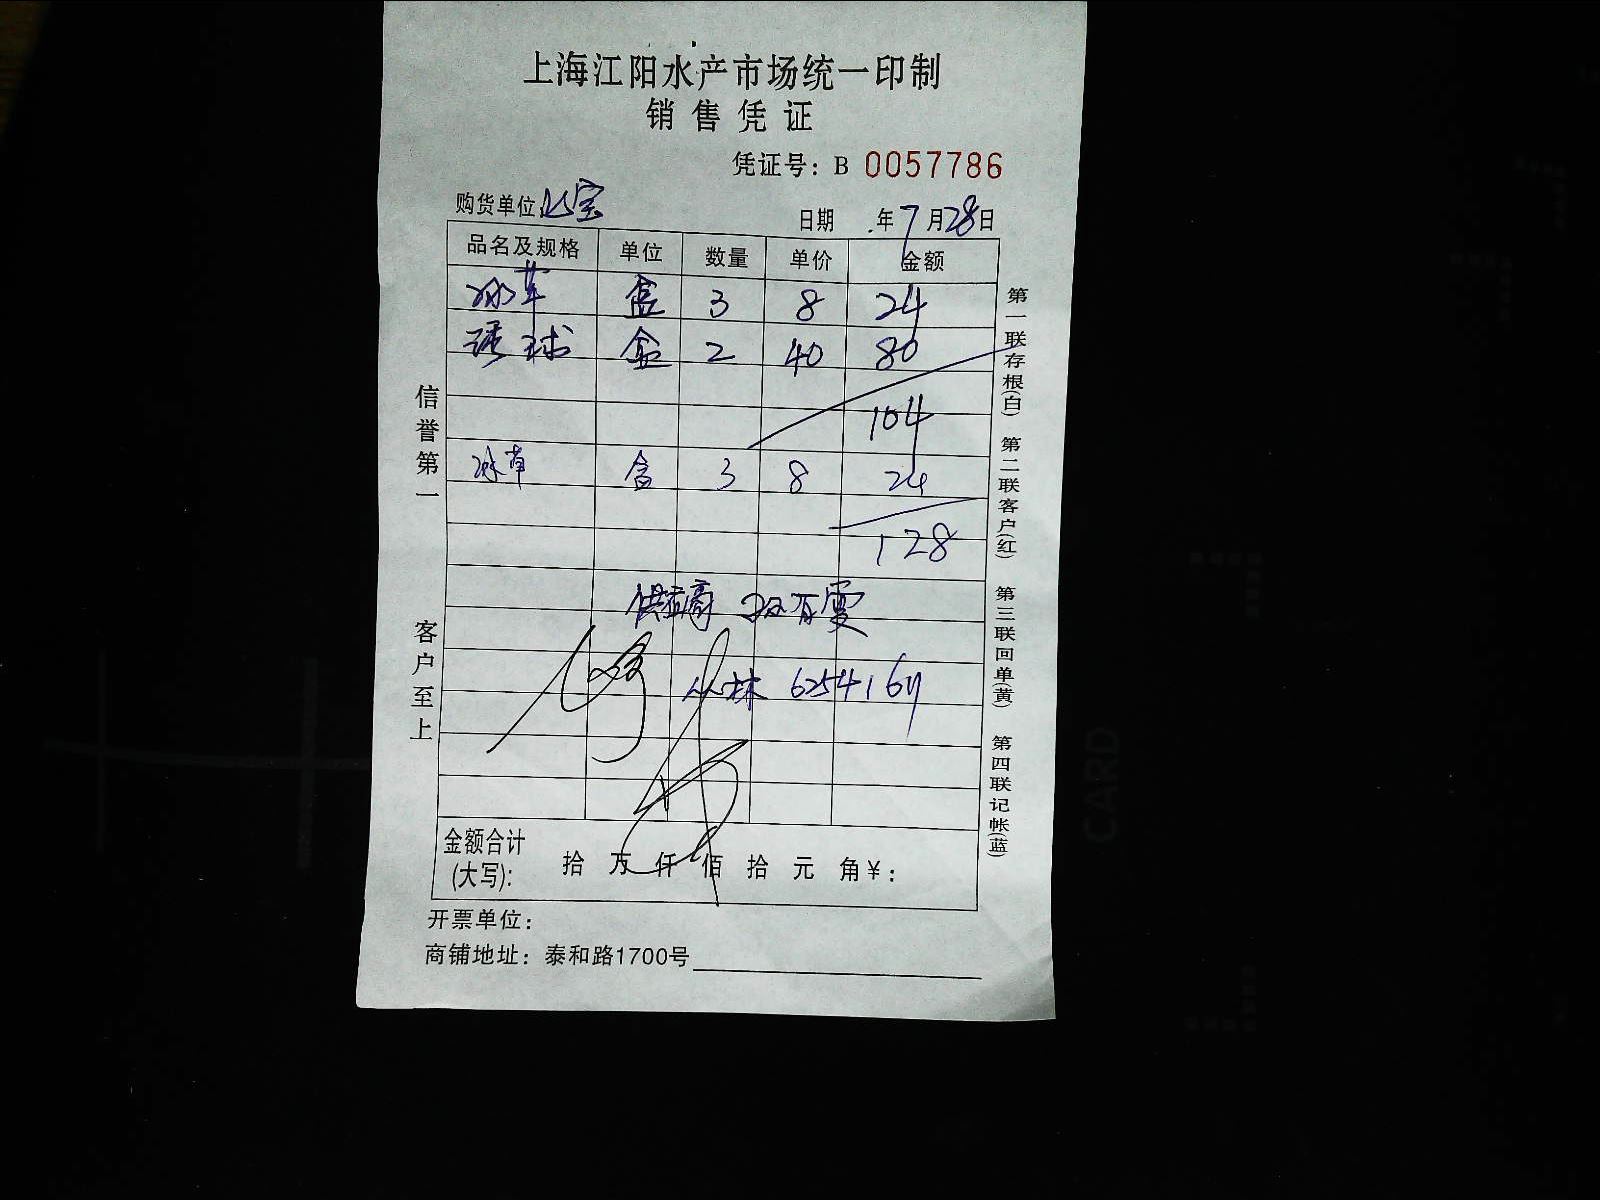 上海江阳水产市场统一印制
销售凭证
凭证号: B 0057786
购货单位 宝
日期 年 7 月 28 日
品名及规格 单位 数量 单价 金额
冰草 盒 3 8 24
球 盒 2 40 80
104
冰草 盒 3 8 24
128
供应商
林 6254167
金额合计
(大写): 拾 万 仟 佰 拾 元 角 ¥:
开票单位:
商铺地址: 泰和路1700号
信誉第一
客户至上
第一联存根(白)
第二联客户(红)
第三联回单(黄)
第四联记帐(蓝)
CARD